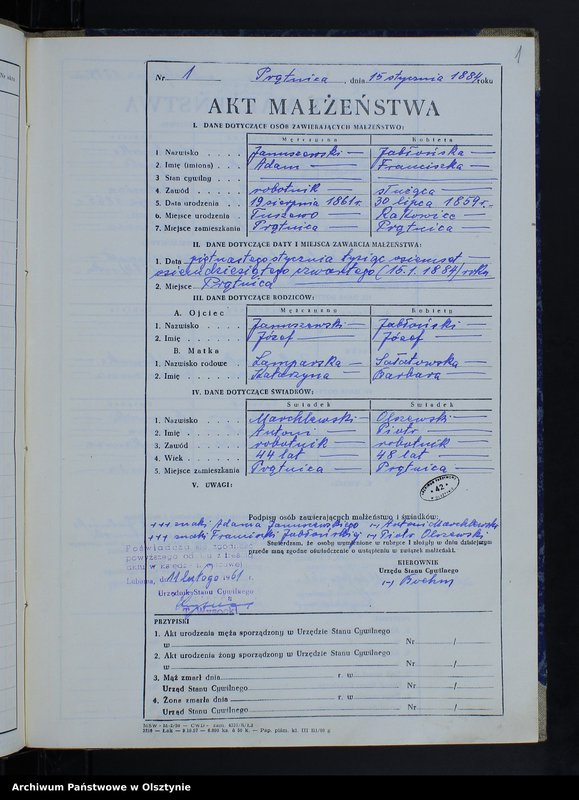 1
Nr 1 Prątnica, dnia 15 stycznia 1884 roku
AKT MAŁŻEŃSTWA
I. DANE DOTYCZĄCE OSÓB ZAWIERAJĄCYCH MAŁŻEŃSTWO:
Mężczyzna Kobieta
1. Nazwisko Januszewski Jabłońska
2. Imię (imiona) Adam Franciszka
3. Stan cywilny
4. Zawód robotnik służąca
5. Data urodzenia 19 sierpnia 1861 r. 30 lipca 1859 r.
6. Miejsce urodzenia Tuszewo Rakowice
7. Miejsce zamieszkania Prątnica Prątnica
II. DANE DOTYCZĄCE DATY I MIEJSCA ZAWARCIA MAŁŻEŃSTWA:
1. Data piętnastego stycznia tysiąc osiemset
osiemdziesiątego czwartego (15.1.1884) roku
2. Miejsce Prątnica
III. DANE DOTYCZĄCE RODZICÓW:
Mężczyzna Kobieta
A. Ojciec
1. Nazwisko Januszewski Jabłoński
2. Imię Józef Józef
B. Matka
1. Nazwisko rodowe Lamparska Sałatowska
2. Imię Katarzyna Barbara
IV. DANE DOTYCZĄCE ŚWIADKÓW:
Świadek Świadek
1. Nazwisko Marchlewski Olszewski
2. Imię Antoni Piotr
3. Zawód robotnik robotnik
4. Wiek 44 lat 48 lat
5. Miejsce zamieszkania Prątnica Prątnica
V. UWAGI:
42
Podpisy osób zawierających małżeństwo i świadków:
+++ znaki Adama Januszewskiego (-) Antoni Marchlewski
+++ znaki Franciszki Jabłońskiej (-) Piotr Olszewski
Stwierdzam, że osoby wymienione w rubryce I złożyły w dniu dzisiejszym
przede mną zgodne oświadczenie o wstąpieniu w związek małżeński.
KIEROWNIK
Urzędu Stanu Cywilnego
(-) Boehm
Poświadcza się zgodność
powyższego odpisu z treścią
aktu w księdze
Lubawa, dn. 11 lutego 1961 r.
Urzędnik Stanu Cywilnego
PRZYPISKI
1. Akt urodzenia męża sporządzony w Urzędzie Stanu Cywilnego
w Nr /
2. Akt urodzenia żony sporządzony w Urzędzie Stanu Cywilnego
w Nr /
3. Mąż zmarł dnia r. w
Urząd Stanu Cywilnego Nr /
4. Żona zmarła dnia r. w
Urząd Stanu Cywilnego Nr /
Archiwum Państwowe w Olsztynie